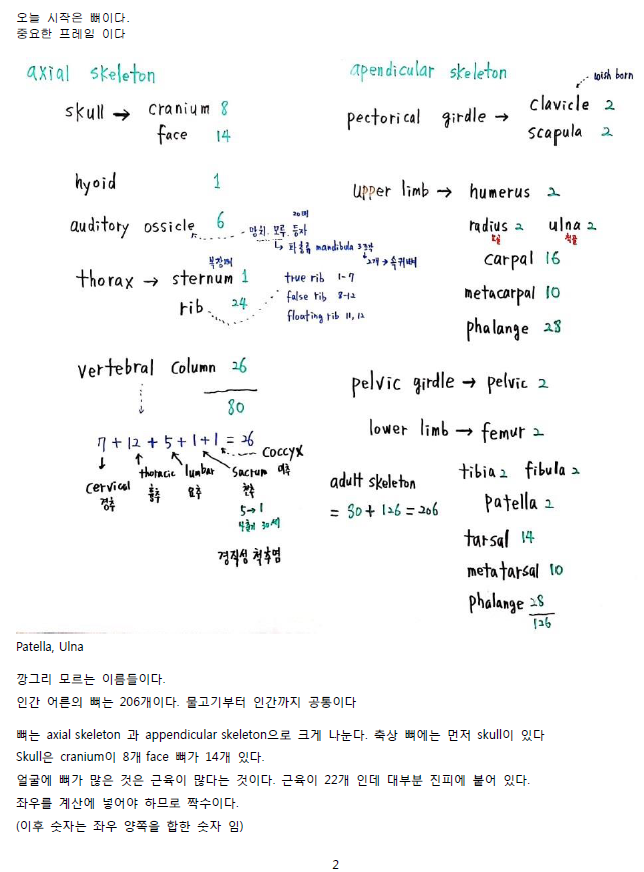 오늘 시작은 뼈이다.
중요한 프레임 이다
axial skeleton
skull → cranium 8
face 14
hyoid 1
auditory ossicle 6
20대
망치. 모루. 등자
→ 파충류 mandibula 3조각
2개 → 속귀뼈
thorax → sternum 1
복장뼈
rib 24
true rib 1-7
false rib 8-12
floating rib 11, 12
vertebral column 26
80
7 + 12 + 5 + 1 + 1 = 26
cervical
경추
thoracic
흉추
lumbar
요추
sacrum
천추
5→1
coccyx
미추
경직성 척추염
apendicular skeleton
wish born
pectorical girdle → clavicle 2
scapula 2
upper limb → humerus 2
radius 2 ulna 2
요골 척골
carpal 16
metacarpal 10
phalange 28
pelvic girdle → pelvic 2
lower limb → femur 2
tibia 2 fibula 2
patella 2
tarsal 14
metatarsal 10
phalange 28
126
adult skeleton
= 80 + 126 = 206
Patella, Ulna
깡그리 모르는 이름들이다.
인간 어른의 뼈는 206개이다. 물고기부터 인간까지 공통이다
뼈는 axial skeleton 과 appendicular skeleton으로 크게 나눈다. 축상 뼈에는 먼저 skull이 있다
Skull은 cranium이 8개 face 뼈가 14개 있다.
얼굴에 뼈가 많은 것은 근육이 많다는 것이다. 근육이 22개 인데 대부분 진피에 붙어 있다.
좌우를 계산에 넣어야 하므로 짝수이다.
(이후 숫자는 좌우 양쪽을 합한 숫자 임)
2